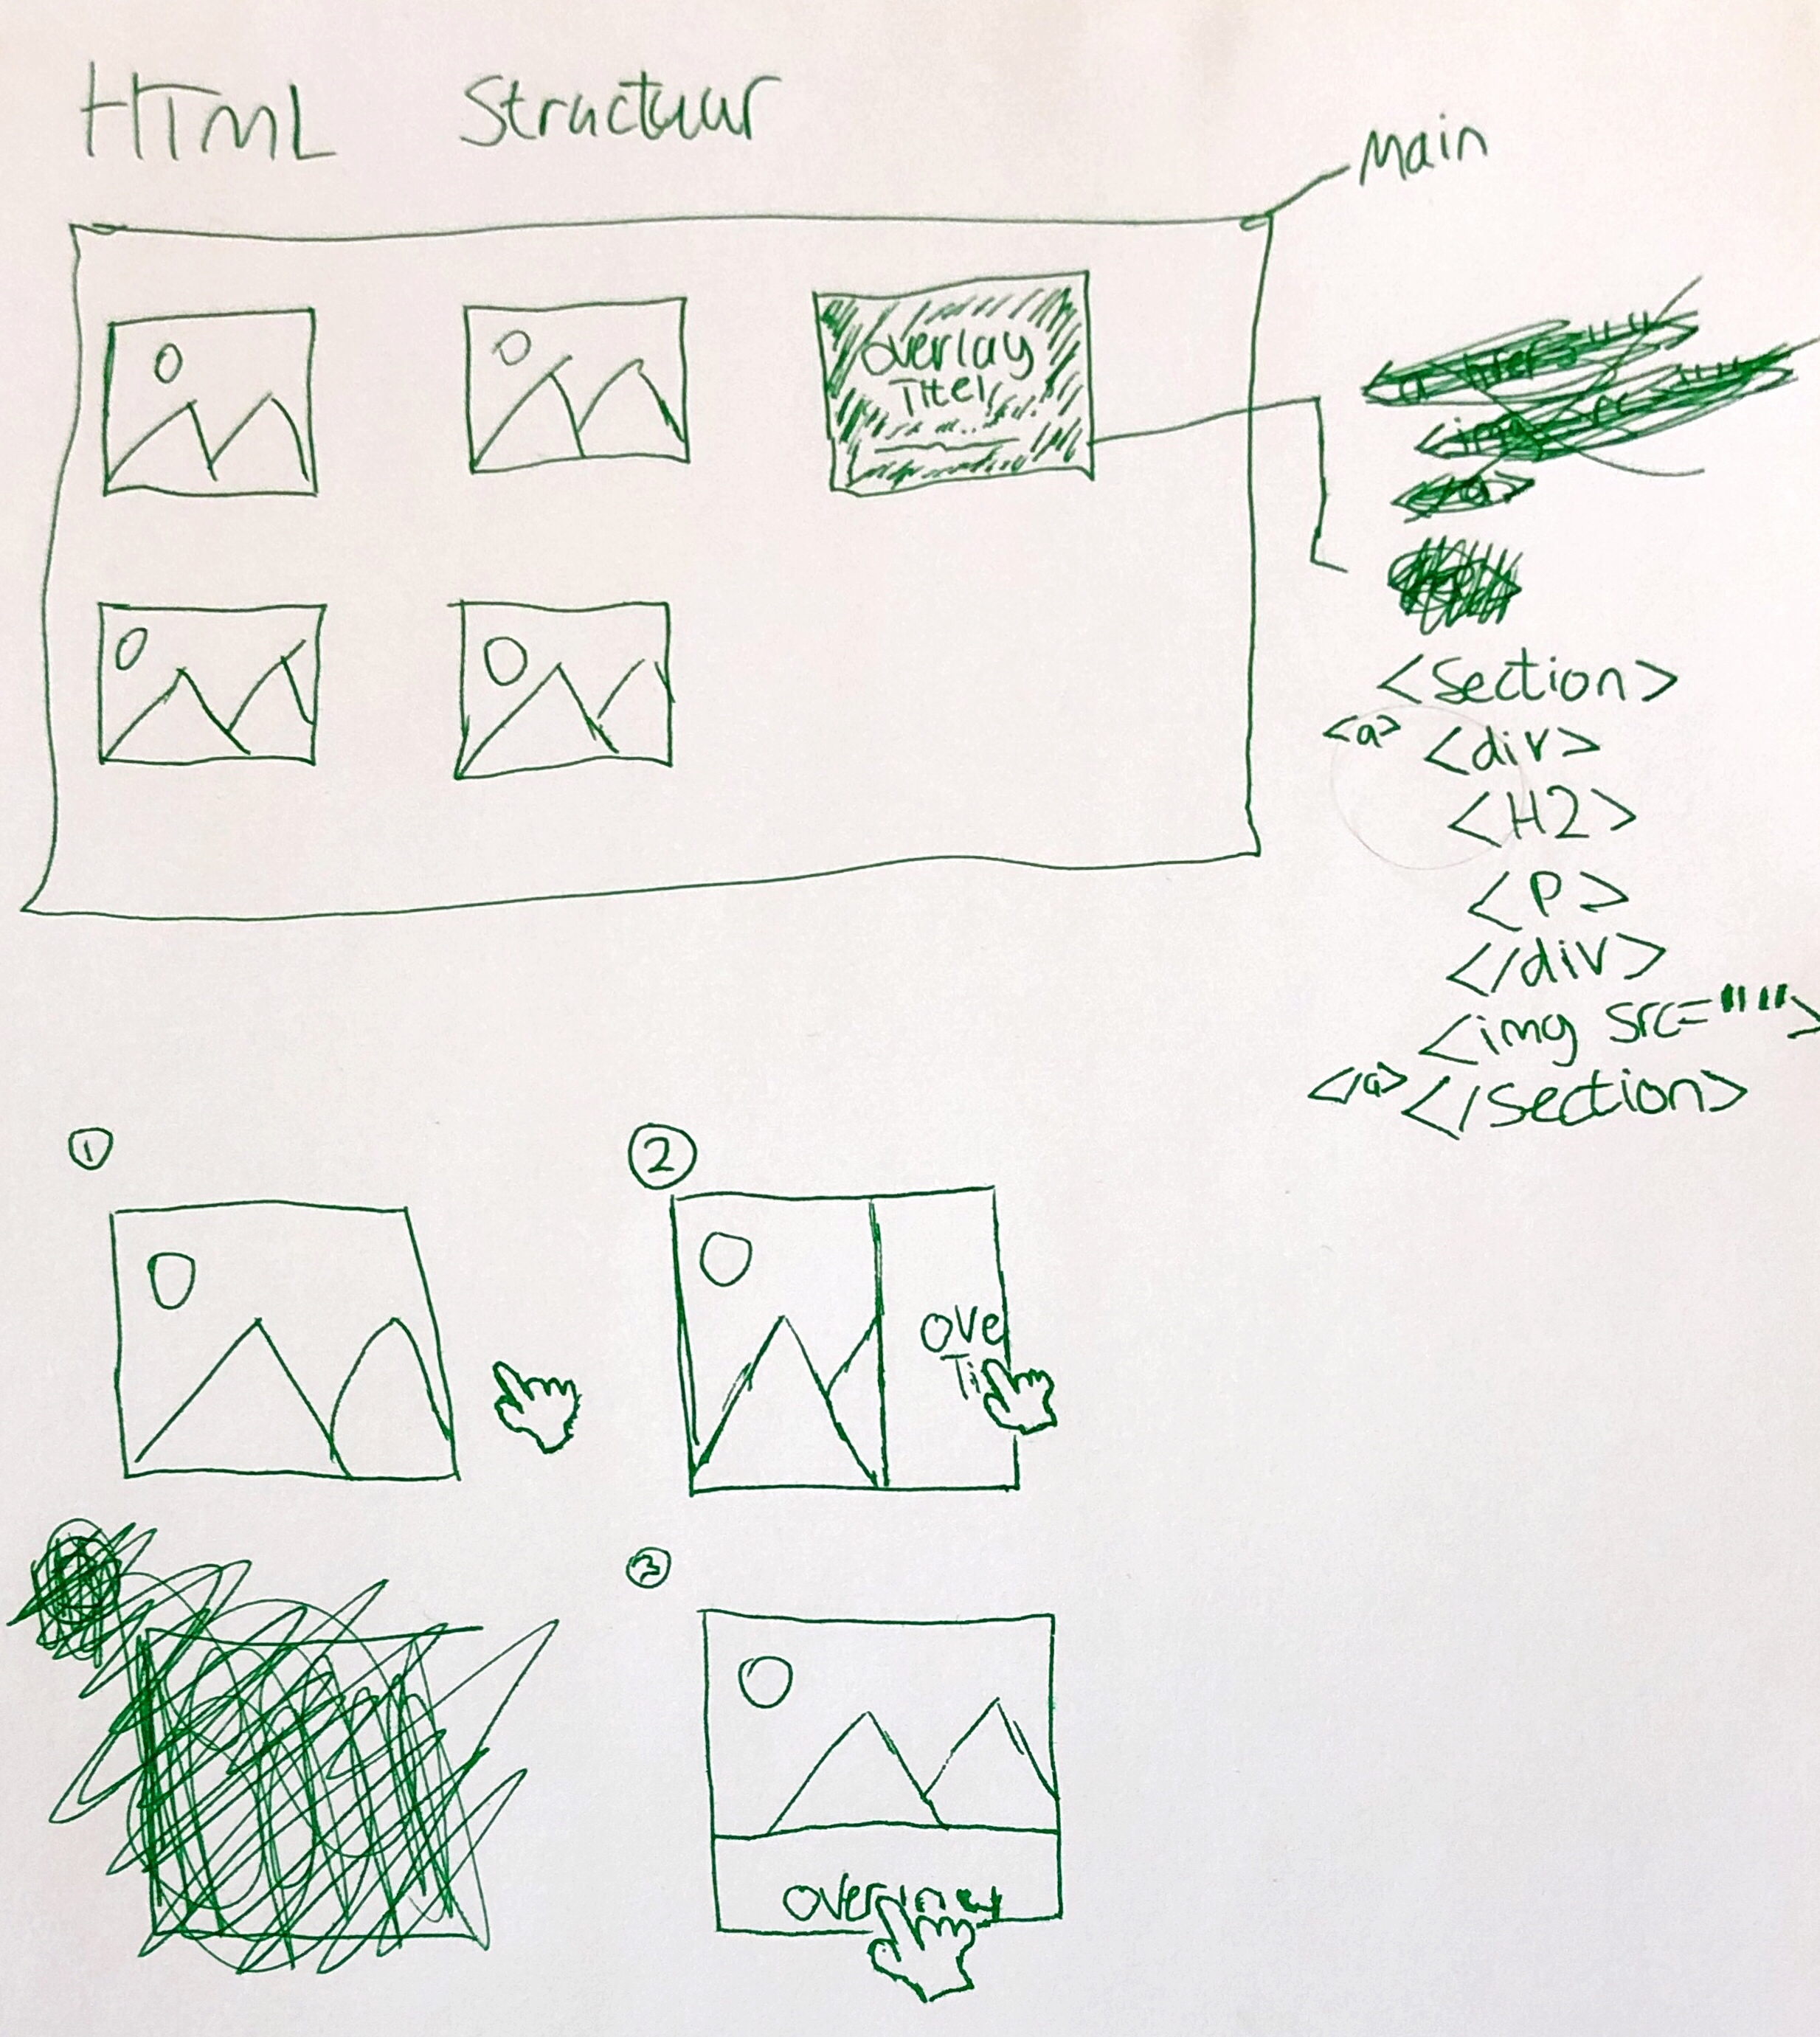 HTML Structuur
Main
overlay
Titel
<section>
<a> <div>
<H2>
<P>
</div>
<img src="">
</a> </section>
①
②
Ove
Ti
③